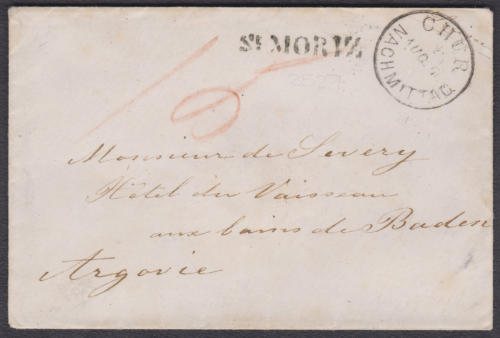 St MORIZ
CHUR
AUG.
NACHMITTAG
Monsieur de Severy
Hôtel du Vaisseau
aux bains de Baden
Argovie